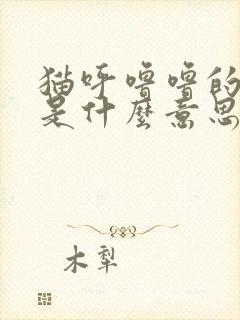 猫呼噜噜的
是什麽意思
木犁